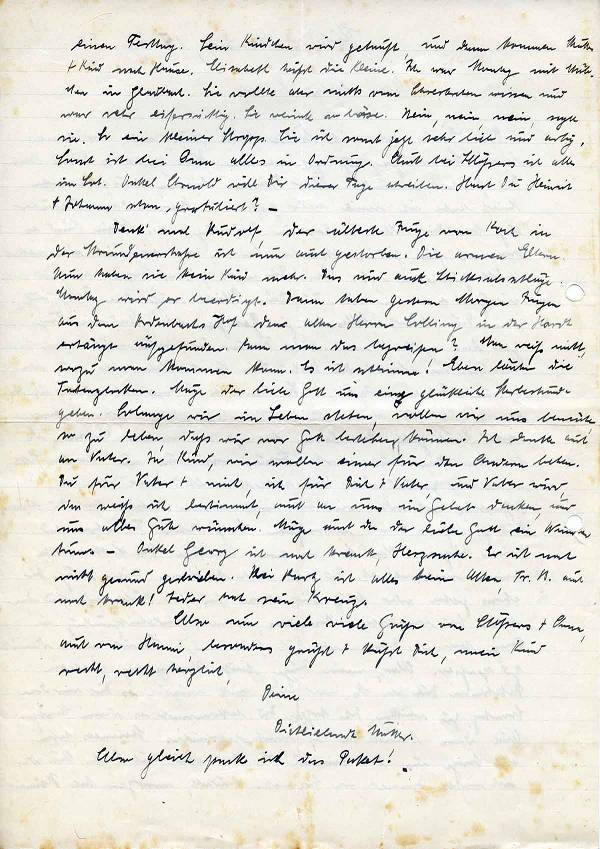 einen Festtag. Sein Kindchen wird getauft, und dann kommen Mutter
+ Kind nach Hause. Elisabeth heißt die Kleine. Ich war Montag mit
in Gladbach. Sie wollte aber nichts vom wissen und
war sehr eifersüchtig. Sie weinte so böse. Nein, nein, nein, sagte
sie. So ein kleiner Stropps. Sie ist sonst jetzt sehr lieb und artig,
Sonst ist bei Oma alles in Ordnung. Auch bei Schlössers ist alles
im Lot. Onkel Arnold will Dir dieser Tage schreiben. Hast Du Heinrich
+ Johanna schon gratuliert? –
Denk' mal Rudolf, der älteste Junge von Koch in
der Strundenerstraße ist nun auch gestorben. Die armen Eltern.
Nun haben sie kein Kind mehr. Das sind auch Schicksalsschläge.
Montag wird er beerdigt. Dann haben gestern Morgen Jungen
aus dem Hof den alten Herrn Colling in der Hardt
erhängt aufgefunden. Kann man das begreifen? Man weiß nicht,
wozu man kommen kann. Es ist schlimm! Eben läuten die
Totenglocken. Möge der liebe Gott uns eine glückliche Sterbestunde
geben. Solange wir im Leben stehen, wollen wir uns bemühen
so zu leben, daß wir vor Gott bestehen können. Ich denke auch
an Vater. Ja Kind, wir wollen einer für den Andern beten.
Du für Vater + mich, ich für Dich + Vater, und Vater wird,
das weiß ich bestimmt, auch an uns im Gebet denken, und
uns alles Gute wünschen. Möge auch da der liebe Gott ein Wunder
tun – Onkel Georg ist noch krank, Herzsache. Er ist noch
nicht gesund geschrieben. Bei Kurtz ist alles beim Alten, Fr. K. auch
noch krank! Jeder hat sein Kreuz.
Also nun viele viele Grüße von Schlössers + Oma,
auch von Hanni, besonders grüßt + küßt Dich, mein Kind
recht, recht herzlich,
Deine
Dichliebende Mutter.
Also gleich pack ich das Paket!